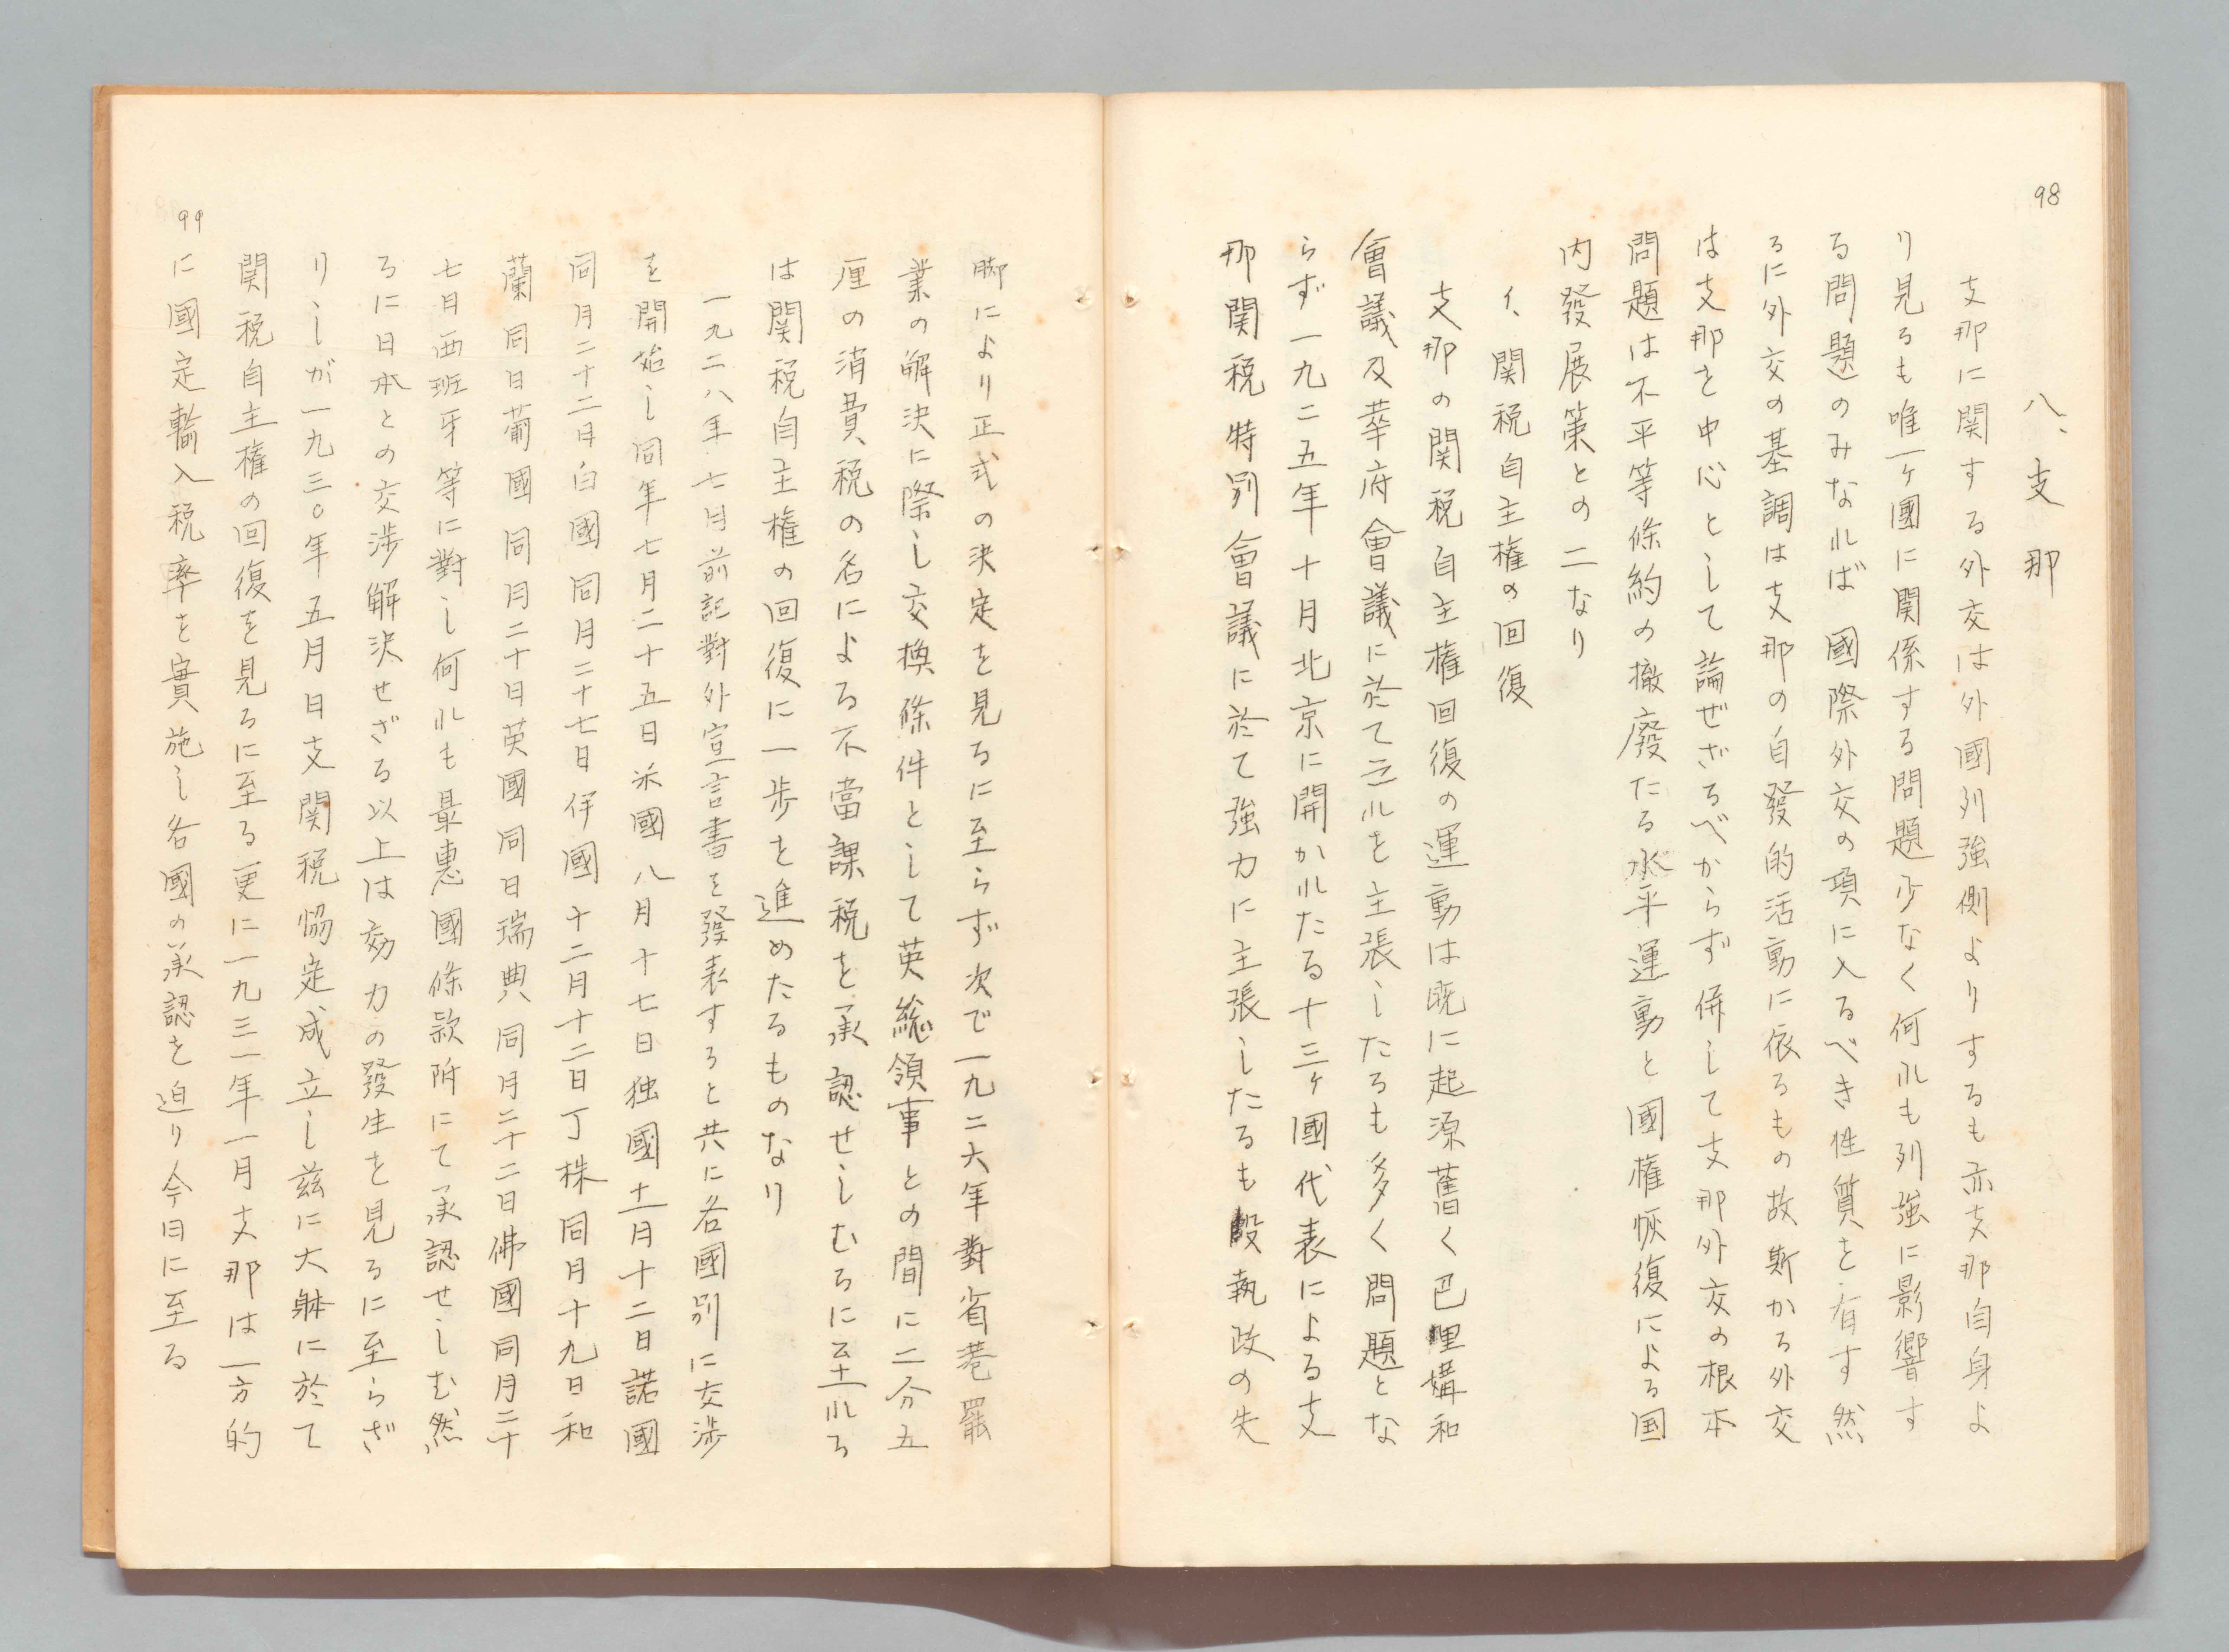 98
八、支那
支那に関する外交は外國列強側よりするも亦支那自身よ
り見るも唯一ヶ國に関係する問題少なく何れも列強に影響す
る問題のみなれば國際外交の項に入るべき性質を有す然
るに外交の基調は支那の自發的活動に依るもの故斯かる外交
は支那を中心として論ぜざるべからず併して支那外交の根本
問題は不平等條約の撤廢たる水平運動と國權恢復による国
内發展策との二なり
イ、関税自主權の回復
支那の関税自主權回復の運動は既に起源舊く巴里媾和
會議及華府會議に於て之れを主張したるも多く問題とな
らず一九二五年十月北京に開かれたる十三ヶ國代表による支
那関税特別會議に於て強力に主張したるも段執政の失
脚により正式の決定を見るに至らず次で一九二六年對省港罷
業の解決に際し交換條件として英総領事との間に二分五
厘の消費税の名による不當課税を承認せしむるに至れる
は関税自主權の回復に一歩を進めたるものなり
一九二八年七月前記對外宣言書を發表すると共に各國別に交渉
を開始し同年七月二十五日米國八月十七日独國十一月十二日諾國
同月二十二日白國同月二十七日伊國十二月十二日丁株同月十九日和
蘭同日葡國同月二十日英國同日瑞典同月二十二日佛國同月二十
七日西班牙等に對し何れも最惠國條款附にて承認せしむ然
るに日本との交渉解決せざる以上は効力の發生を見るに至らざ
りしが一九三〇年五月日支関税協定成立し茲に大躰に於て
関税自主權の回復を見るに至る更に一九三一年一月支那は一方的
に國定輸入税率を實施し各國の承認を迫り今日に至る
99